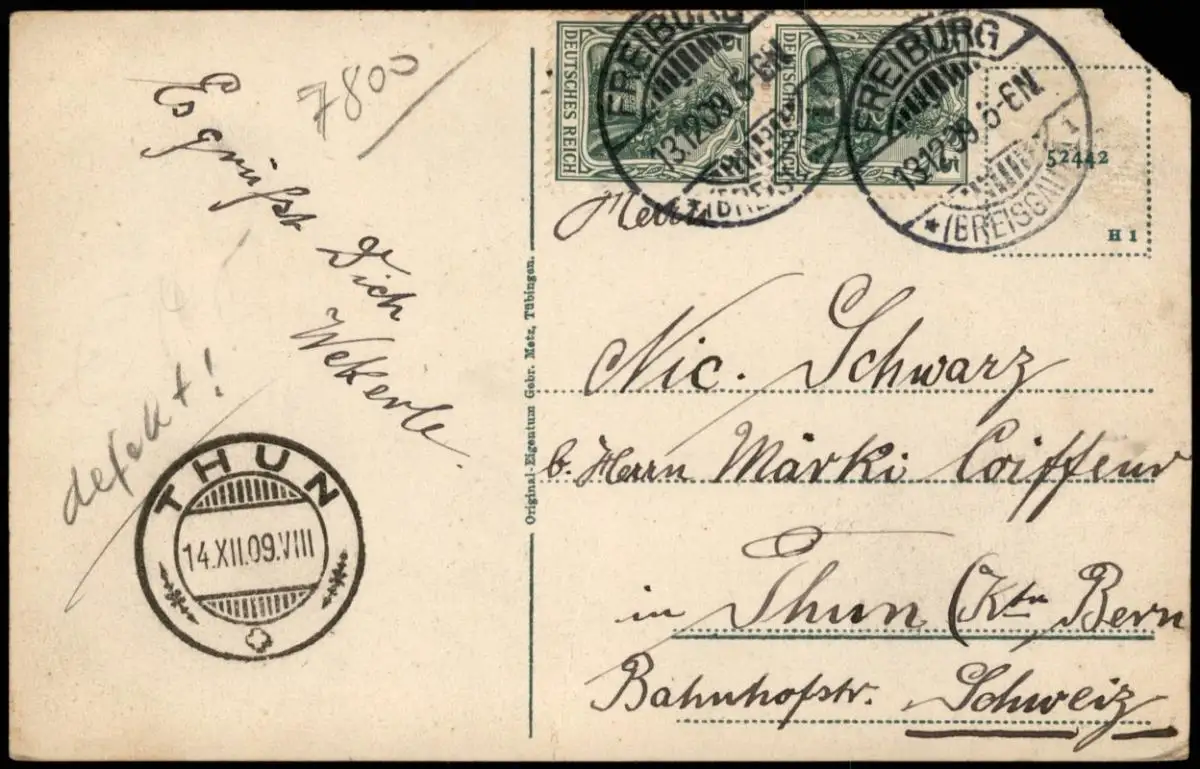 7800
Es grüßt
Dich
Wekerle.
defekt!
THUN
14.XII.09.VIII
Original-Eigentum Gebr. Metz, Tübingen.
DEUTSCHES REICH
5
DEUTSCHES REICH
5
FREIBURG
13.12.09. 5-6N.
*(BREIS
FREIBURG
13.12.09. 5-6N.
*(BREISGAU) 1
52442
H 1
Herrn
Nic. Schwarz
b. Herrn Märki Coiffeur
in Thun (Ktn Bern
Bahnhofstr. Schweiz